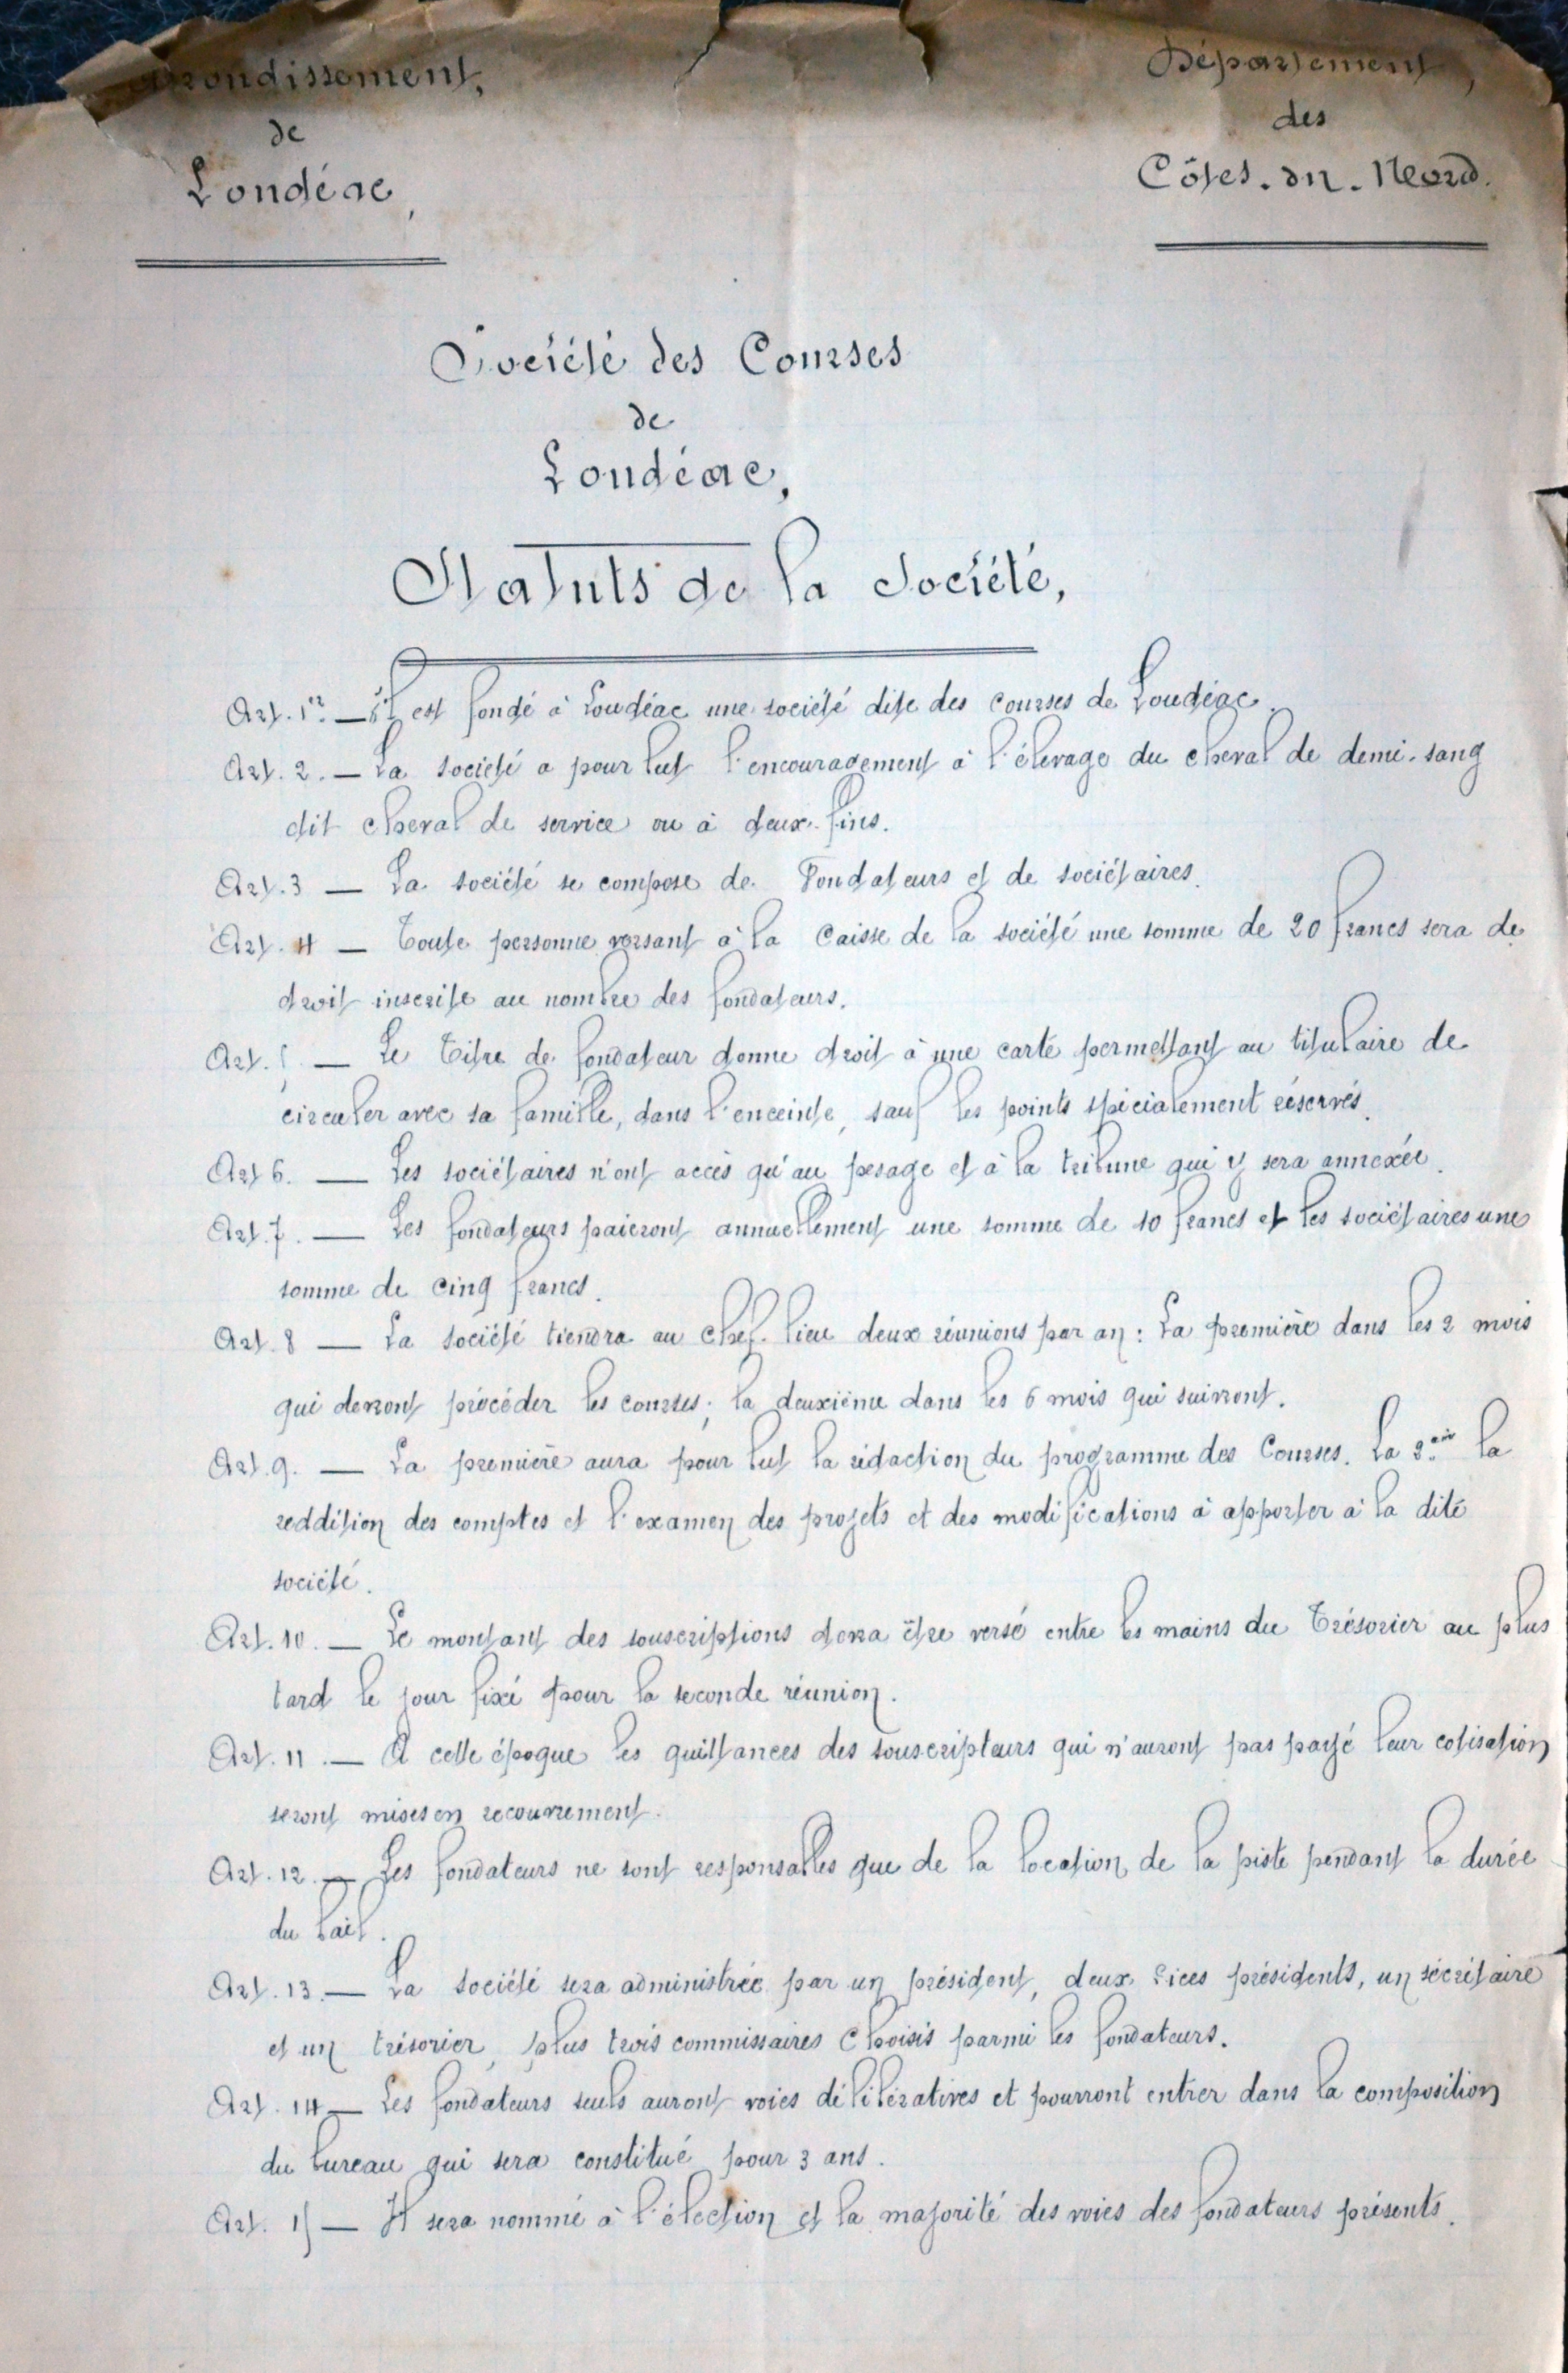 Arrondissement,
de
Loudéac,
Département,
des
Côtes-du-Nord.
Société des Courses
de
Loudéac,
Statuts de la Société,
Art. 1er. — Il est fondé à Loudéac une société dite des courses de Loudéac.
Art. 2. — La société a pour but l'encouragement à l'élevage du cheval de demi-sang
dit cheval de service ou à deux fins.
Art. 3 — La société se compose de Fondateurs et de sociétaires.
Art. 4 — Toute personne versant à la Caisse de la société une somme de 20 francs sera de
droit inscrite au nombre des fondateurs.
Art. 5 — Le Titre de fondateur donne droit à une carte permettant au titulaire de
circuler avec sa famille, dans l'enceinte, sauf les points spécialement réservés.
Art 6. — Les sociétaires n'ont accès qu'au pesage et à la tribune qui y sera annexée.
Art. 7. — Les fondateurs paieront annuellement une somme de 10 francs et les sociétaires une
somme de cinq francs.
Art. 8 — La société tiendra au chef-lieu deux réunions par an : La première dans les 2 mois
qui devront précéder les courses; la deuxième dans les 6 mois qui suivront.
Art. 9. — La première aura pour but la rédaction du programme des Courses. La 2.eme la
reddition des comptes et l'examen des projets et des modifications à apporter à la dite
société.
Art. 10. — Le montant des souscriptions devra être versé entre les mains du Trésorier au plus
tard le jour fixé pour la seconde réunion.
Art. 11. — A cette époque les quittances des souscripteurs qui n'auront pas payé leur cotisation
seront mises en recouvrement.
Art. 12. — Les fondateurs ne sont responsables que de la location de la piste pendant la durée
du bail.
Art. 13. — La société sera administrée par un président, deux vices présidents, un sécrétaire
et un trésorier, plus trois commissaires choisis parmi les fondateurs.
Art. 14 — Les fondateurs seuls auront voies délibératives et pourront entrer dans la composition
du bureau qui sera constitué pour 3 ans.
Art. 15 — Il sera nommé à l'élection et la majorité des voies des fondateurs présents.